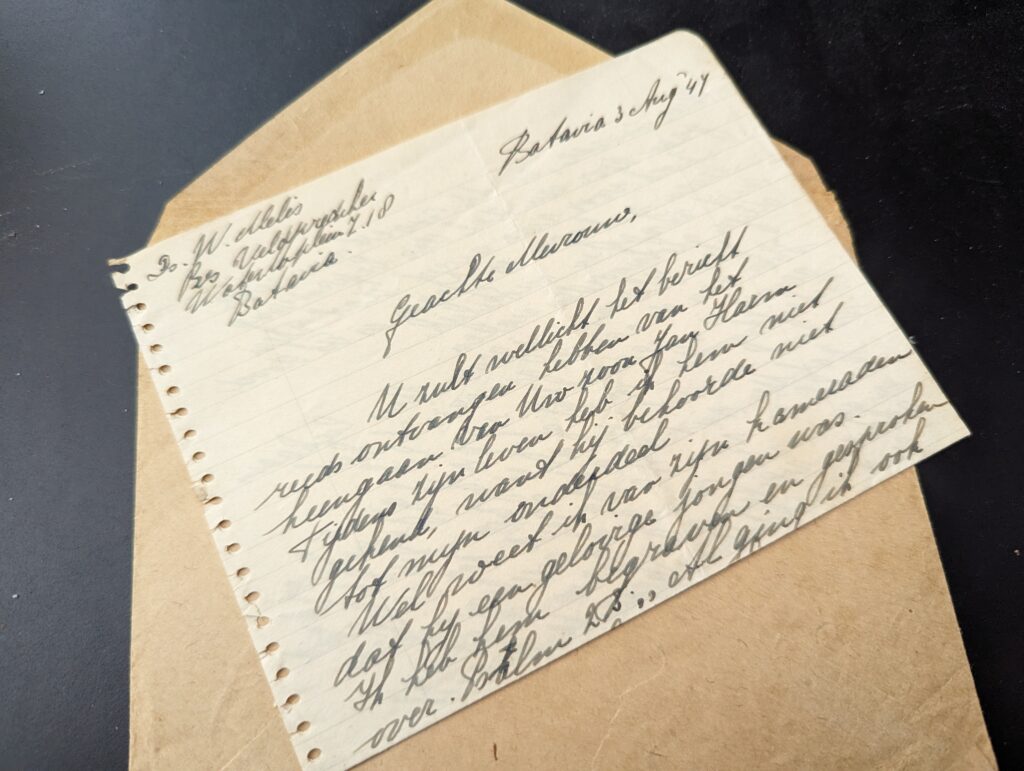 Batavia 3 Aug '47
Ds. W. Melis
Res Veldprediker
Waterlooplein Z. 18
Batavia.
Geachte Mevrouw,
U zult wellicht het bericht
reeds ontvangen hebben van het
heengaan van Uw zoon Jan Harm
Tijdens zijn leven heb ik hem niet
gekend, want hij behoorde niet
tot mijn onderdeel
Wel weet ik van zijn kameraden
dat hij een gelovige jongen was.
Ik heb hem begraven en gesproken
over Psalm 23: „Al ging ik ook